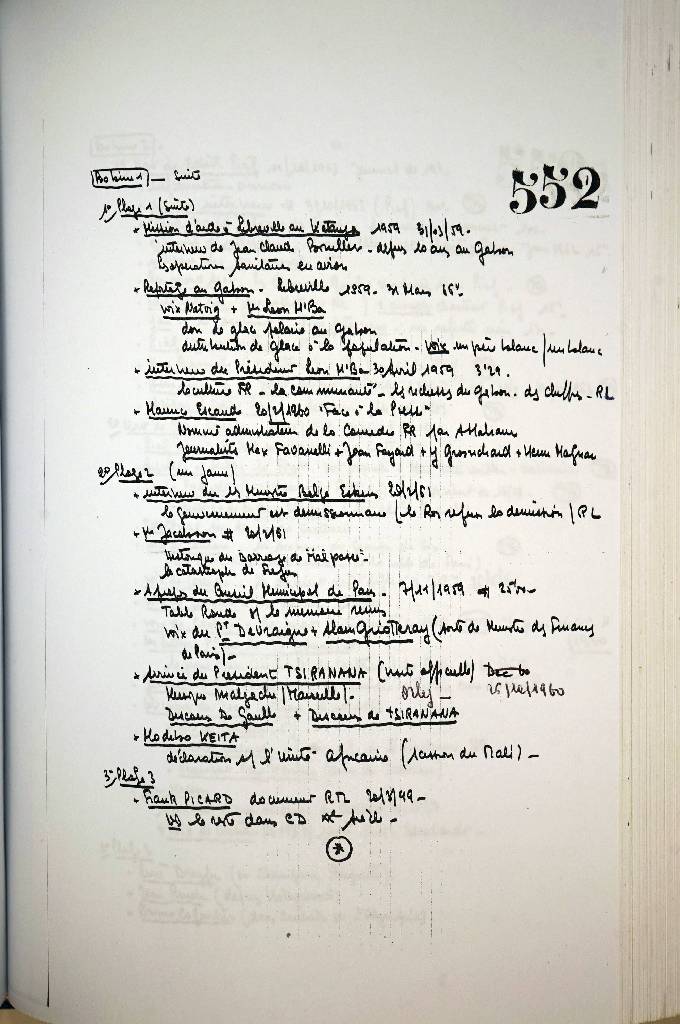 552
Bobine 1 — Suite
1º/ Plage 1 (Suite)
* Mission d'aide à Libreville au Katanga 1959 31/03/59.
interview de Jean Claude - depuis 10 ans au Gabon
Evaporation sanitaires en avion
* Reportage au Gabon - Libreville 1959 - 31 Mars
Voix + Mr Leon M'Ba
don de glace polaire au Gabon
distribution de glace à la population - Voix un père blanc / un blanc
* interview du Président Leon M'Ba 30 Avril 1959 3'29.
la culture FR - la communauté - les richesses du Gabon - des chiffres - RL
* Maurice Escande 20/2/1960 "Face à la Presse"
Nommé administrateur de la Comedie FR par A Malraux
Journalistes Max Favalelli + Jean Fayard + + Henri Magnan
2º/ Plage 2 (un jour)
* interview du 1er Ministre Belge Eskens 20/2/61
le Gouvernement est demissionnaire (le Roi refuse la demission) RL
* Mr Jacobson # 20/2/61
Historique du Barrage de Malpasset
la catastrophe de Frejus
* A propos du Conseil Municipal de Paris - 7/11/1959 #
Table Ronde s/ le
Voix du Pt Devraigne + Alain Griotteray (sorte de Ministre des Finances
de Paris) -
* Arrivée du Président TSIRANANA (visite officielle) Dec 60
Musique Malgache / Marseillaise. Orly - 26/10/1960
Discours De Gaulle + Discours de TSIRANANA
* Modibo KEITA
déclaration s/ l'Unité africaine (scission du Mali) -
3º/ Plage 3
* Frank PICARD document RTL 20/3/49 -
le reste dans CD -
*